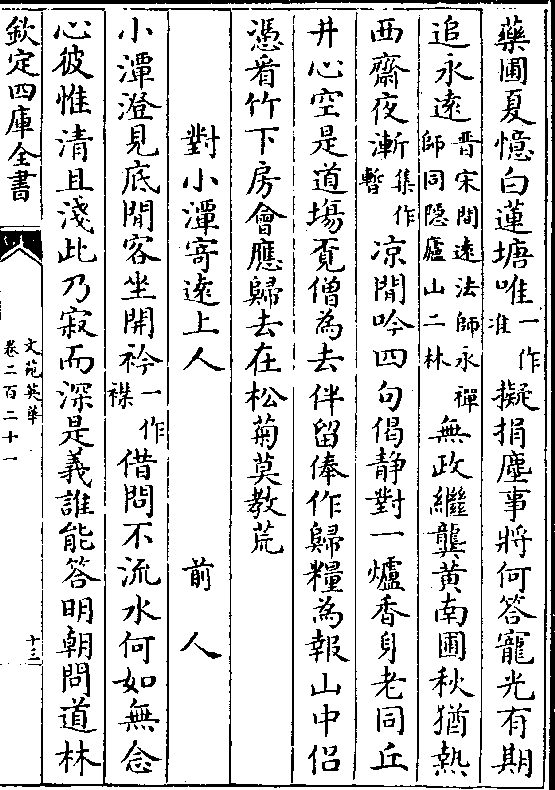 藥圃夏憶白蓮塘唯一作准擬捐塵事將何答寵光有期
追永遠晉宋間遠法師永禪師同隐廬山二林無政繼龔黄南圃秋猶熱
西齋夜漸集作暫凉閒吟四句偈静對一爐香身老同丘
井心空是道場覔僧為去伴留俸作歸糧為報山中侣
憑看竹下房會應歸去在松菊莫教荒
對小潭寄逺上人 前人
小潭澄見底閒客坐開衿一作襟借問不流水何如無念
心彼惟清且淺此乃寂而深是義誰能答明朝問道林
欽定四庫全書
文苑英華
卷二百二十一
十三